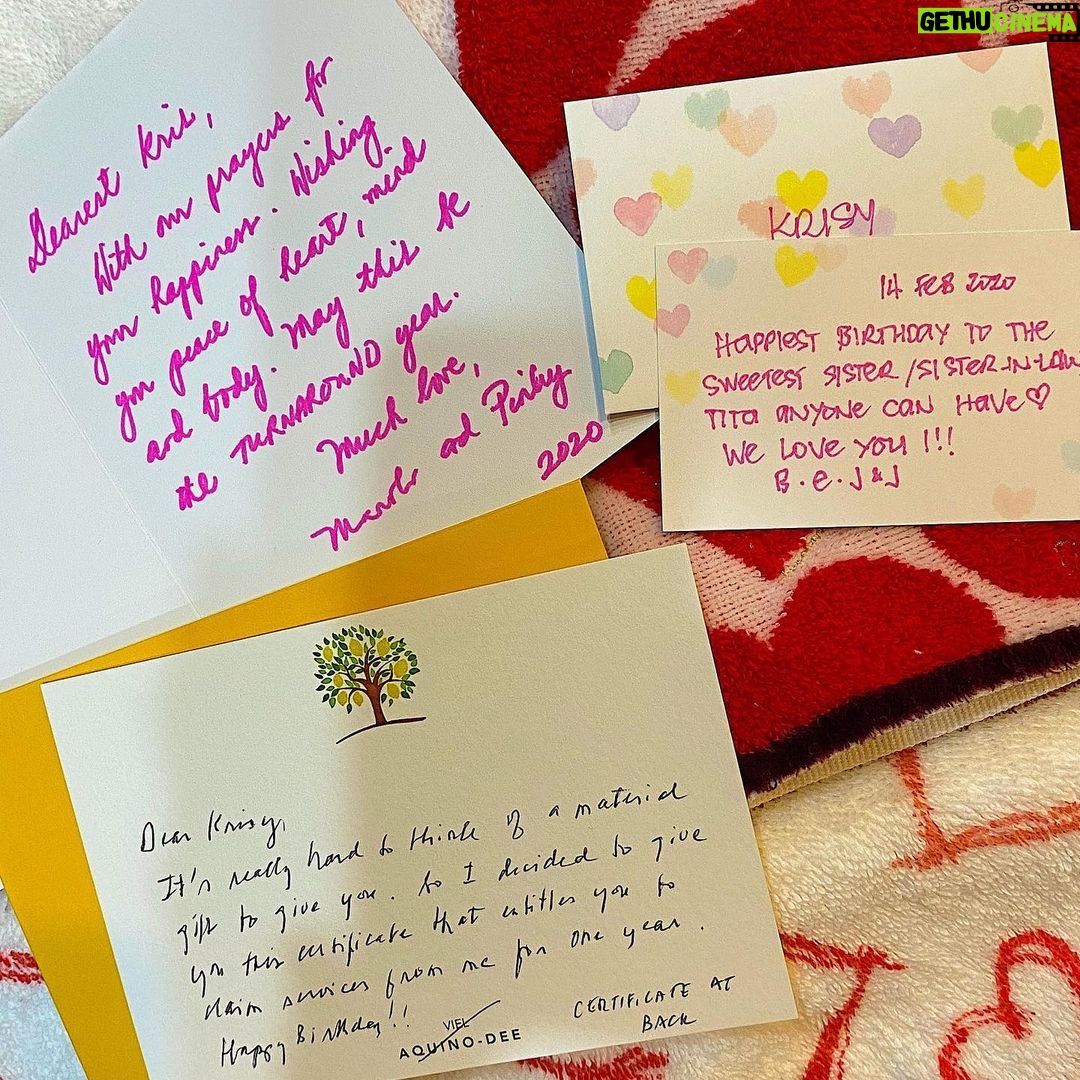 GETHUCINEMA
Dearest Kris,
With our prayers for
your happiness. Wishing
you peace of heart, mind
and body. May this be
the TURNAROUND year.
Much love,
and
2020
KRISY
14 FEB 2020
HAPPIEST BIRTHDAY TO THE
SWEETEST SISTER/SISTER-IN-LAW
TITA ANYONE CAN HAVE♡
WE LOVE YOU!!!
B.E.J&J
Dear Krisy,
It's really hard to think of a material
gift to give you. So I decided to give
you this certificate that entitles you to
claim services from me for one year.
Happy Birthday!!
VIEL
AQUINO-DEE
CERTIFICATE AT
BACK